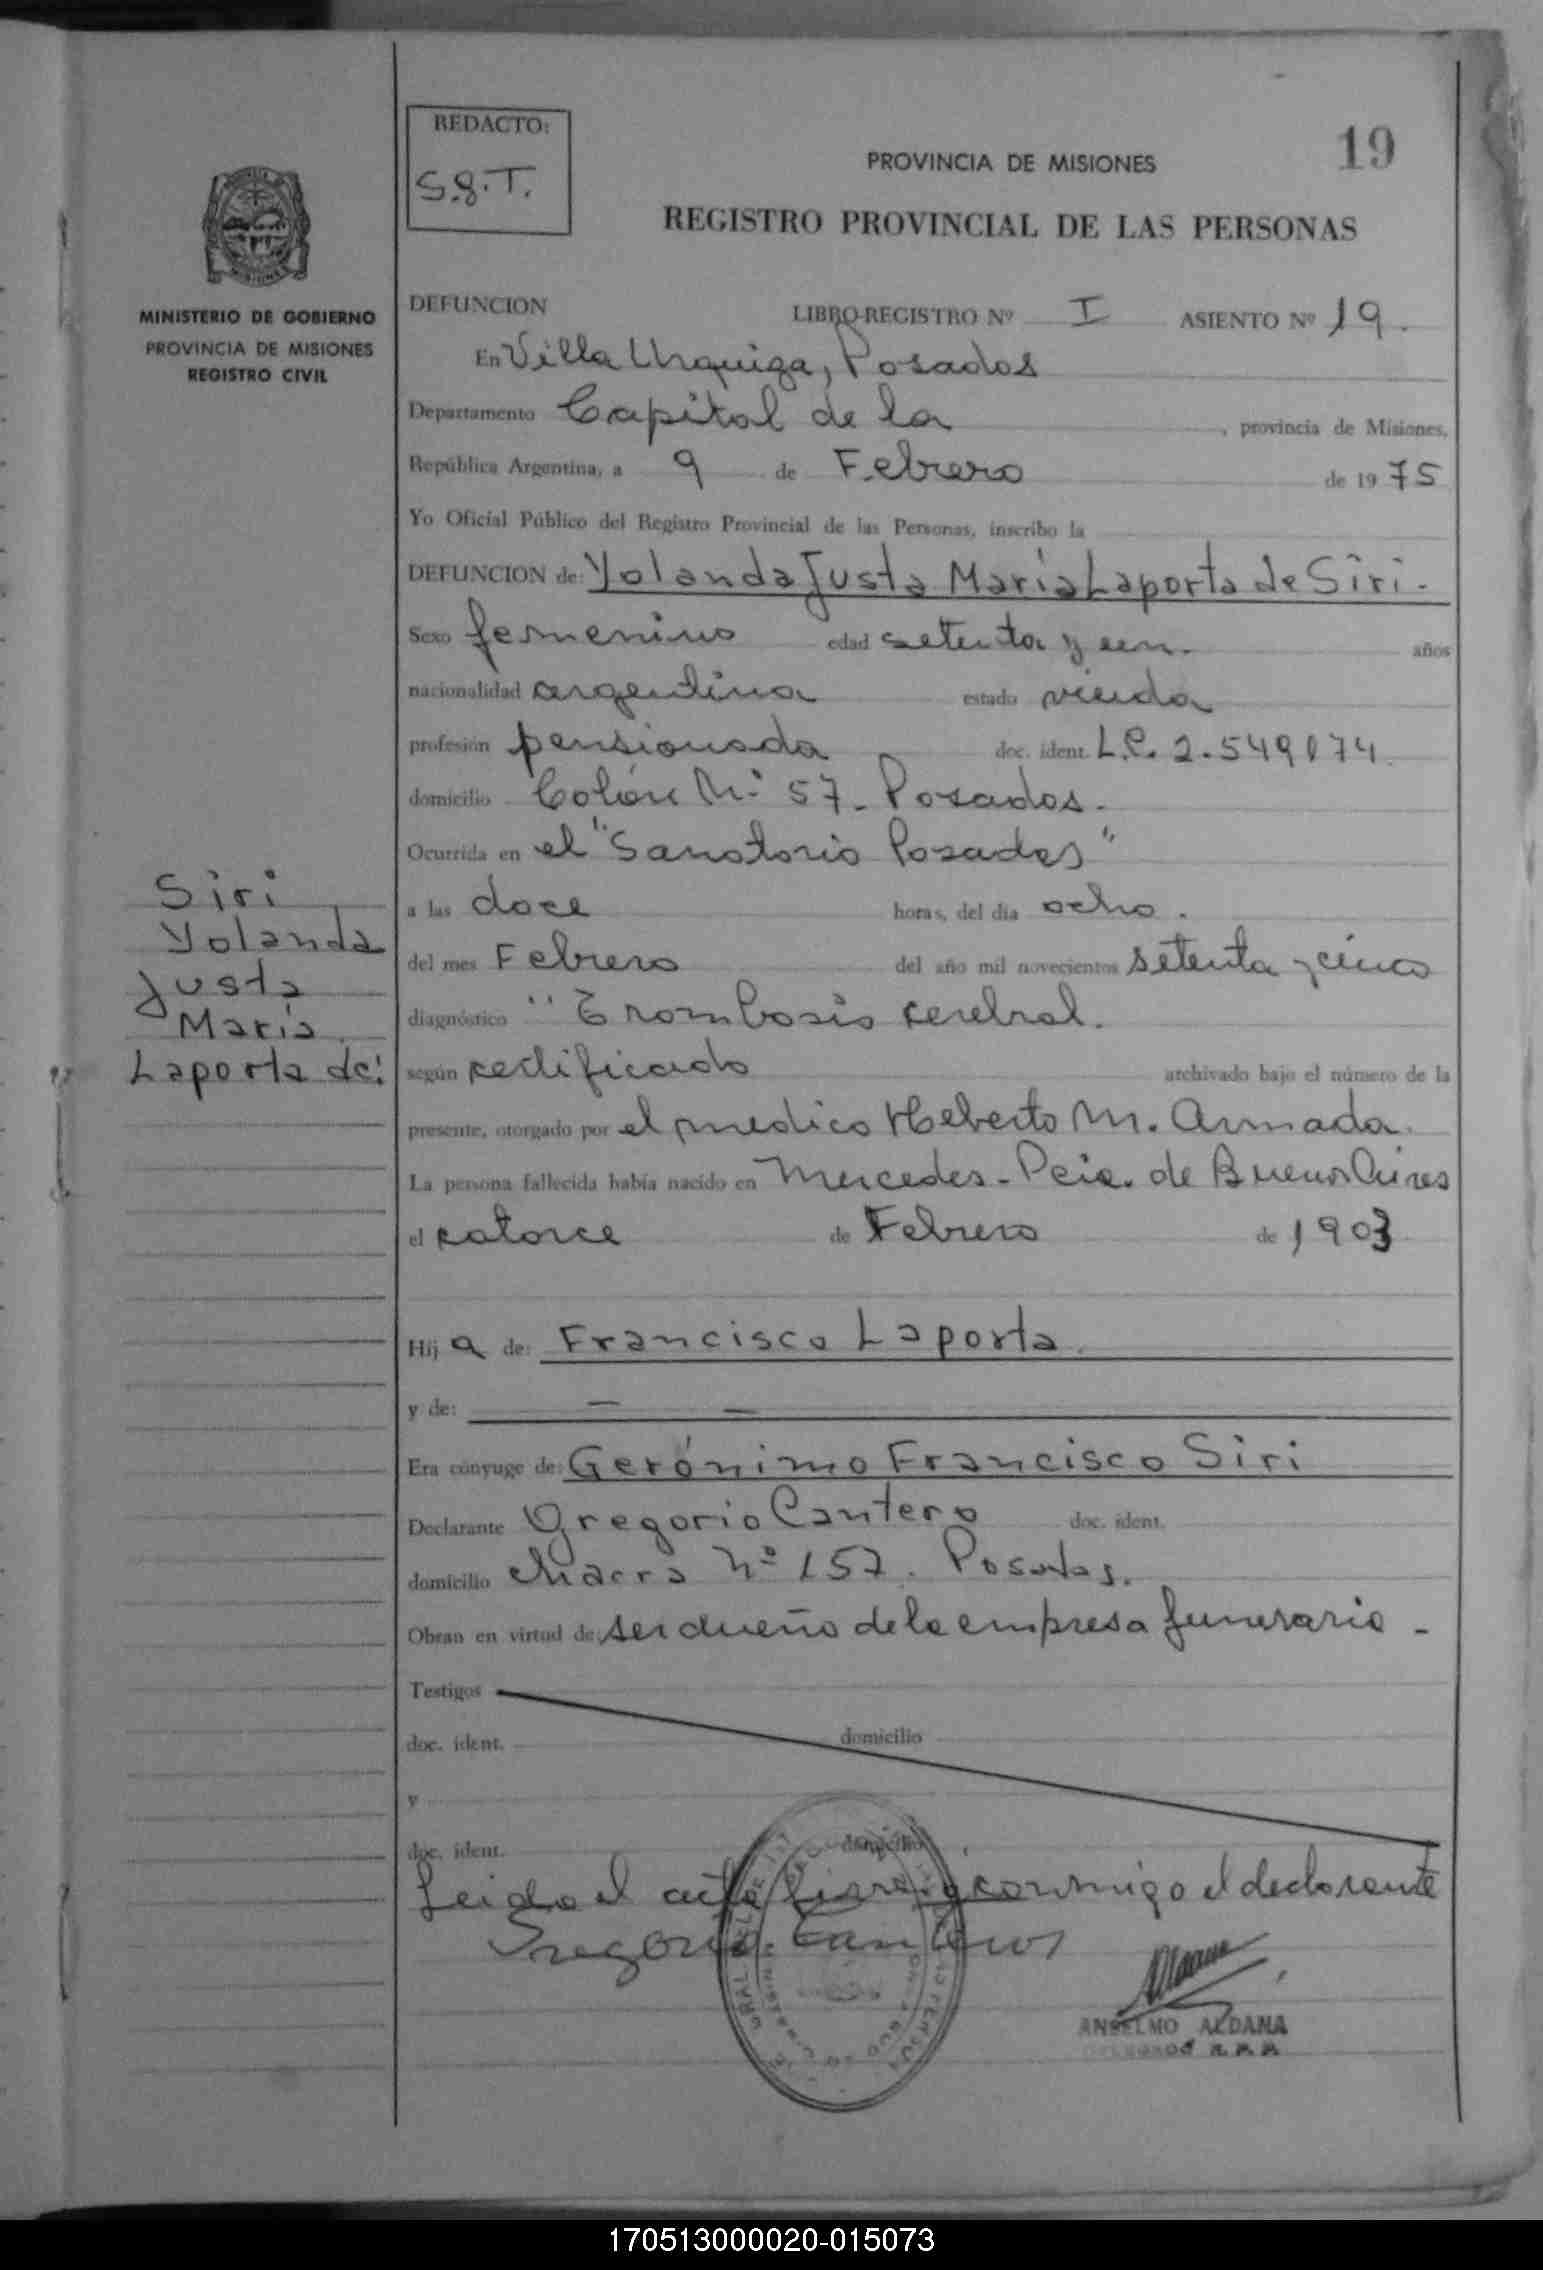 REDACTO:
S.G.T.
19
PROVINCIA DE MISIONES
REGISTRO PROVINCIAL DE LAS PERSONAS
MINISTERIO DE GOBIERNO
PROVINCIA DE MISIONES
REGISTRO CIVIL
DEFUNCION LIBRO-REGISTRO Nº I ASIENTO Nº 19.
En Villa Urquiza, Posadas
Departamento Capital de la , provincia de Misiones,
República Argentina, a 9 de Febrero de 1975
Yo Oficial Público del Registro Provincial de las Personas, inscribo la
DEFUNCION de: Yolanda Justa María Laporta de Siri.
Sexo femenino edad setenta y un. años
nacionalidad argentina estado viuda
profesión pensionada doc. ident. L.C. 2.549174.
domicilio Colón Nº 57- Posadas.
Ocurrida en el "Sanatorio Posadas"
a las doce horas, del día ocho.
del mes Febrero del año mil novecientos setenta y cinco
diagnóstico "Trombosis cerebral.
según certificado archivado bajo el número de la
presente, otorgado por el medico Heberto M. Armada.
La persona fallecida había nacido en Mercedes- Pcia. de Buenos Aires
el catorce de Febrero de 1903
Hija de: Francisco Laporta.
y de: — —
Era cónyuge de: Gerónimo Francisco Siri
Declarante Gregorio Cantero doc. ident.
domicilio chacra Nº 157. Posadas.
Obran en virtud de ser dueño de la empresa funeraria -
Testigos
doc. ident. domicilio
y
doc. ident. domicilio
Leida el acta firma conmigo el declarante
Gregorio Cantero
ANSELMO ALDANA
DELEGADO R.P.P.
Siri
Yolanda
Justa
María
Laporta de:
170513000020-015073